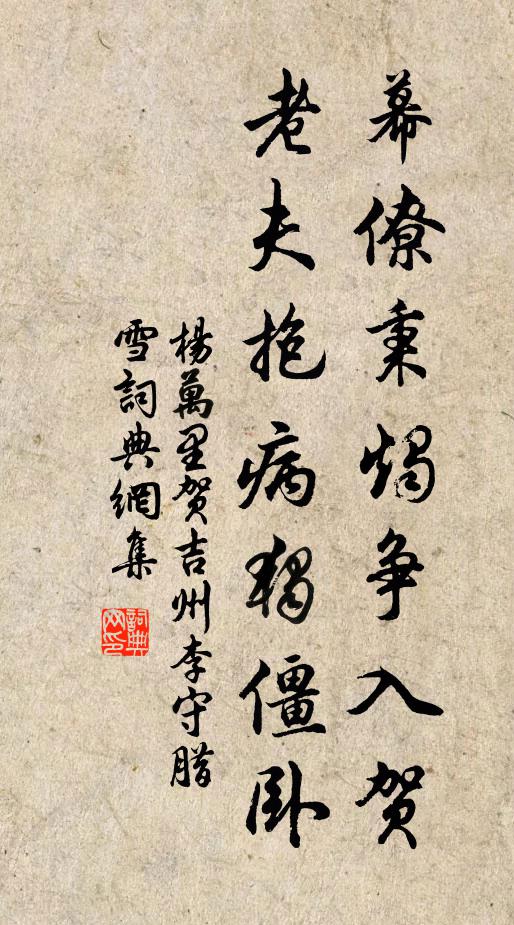 幕僚秉燭争入贺
老夫抱病獨僵卧
楊萬里贺吉州李守腊
雪詞典網集
詞典
网印